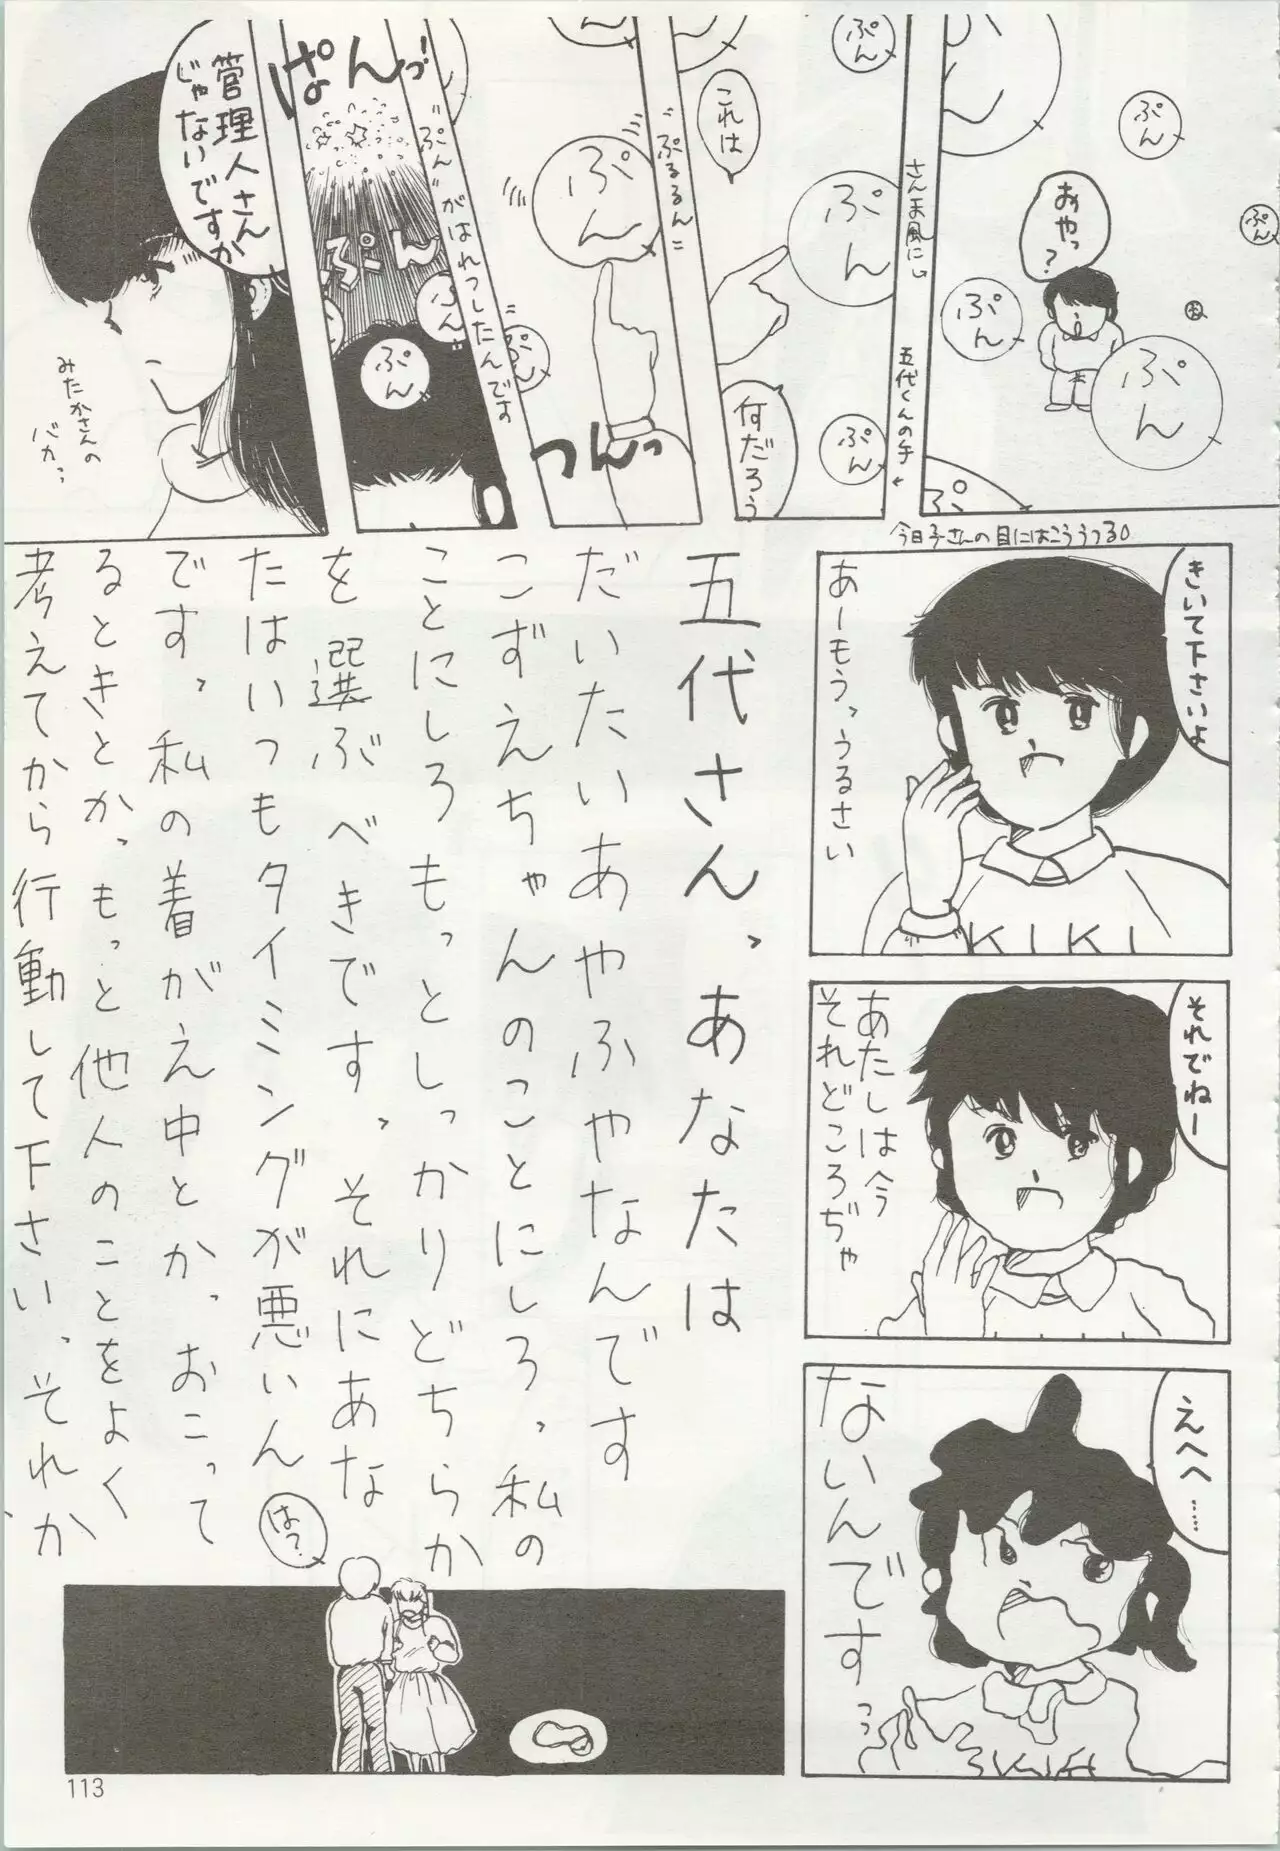 ぷん
ぷん
ぷん
おやっ?
ぷん
ぷん
お
ぷん
さんま風に
五代くんの手
ぷん
これは
ぷん
何だろう
ぷん
"ぷるるん"
ぷん
つんっ
"ぷん"がはれつしたんです
ぱんっ!
ぷん
ぷん
ぷん
ぷん
管理人さん
じゃないですか
みたかさんの
バカっ
今日子さんの目にはこううつる
きいて下さいよ
あーもう、うるさい
KIKI
それでねー
あたしは今
それどころぢゃ
えへへ……
ないんですっっ
五代さん、あなたは
だいたいあやふやなんです
こずえちゃんのことにしろ、私の
ことにしろもっとしっかりどちらか
を選ぶべきです。それにあな
たはいつもタイミングが悪いん
です、私の着がえ中とか、おこって
るときとか、もっと他人のことをよく
考えてから行動して下さい、それか
は?
113